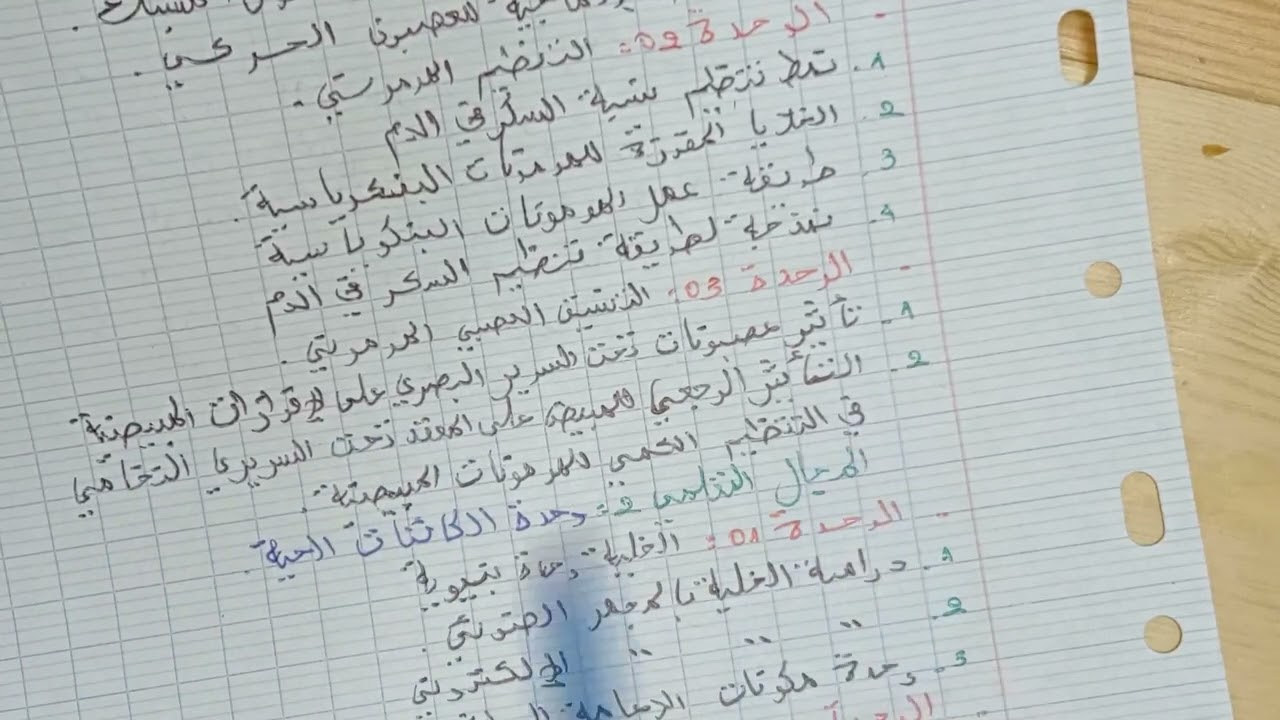 للعصبون الحركي.
- الوحدة 02: التنظيم الهرموني.
1. نمط تنظيم نسبة السكر في الدم
2. الخلايا المفرزة للهرمونات البنكرياسية.
3. طريقة عمل الهرمونات البنكرياسية
4. نمذجة لطريقة تنظيم السكر في الدم
- الوحدة 03: التنسيق العصبي الهرموني.
1. تأثير عصبونات تحت السرير البصري على الإفرازات المبيضية
2. التأثير الرجعي للمبيض على المعقد تحت السريري النخامي
في التنظيم الكمي للهرمونات المبيضية.
المجال التعلمي 2: وحدة الكائنات الحية.
- الوحدة 01: الخلية وحدة بنيوية
1. دراسة الخلية بالمجهر الضوئي.
2. " " " الإلكتروني
3. وحدة مكونات الدعامة